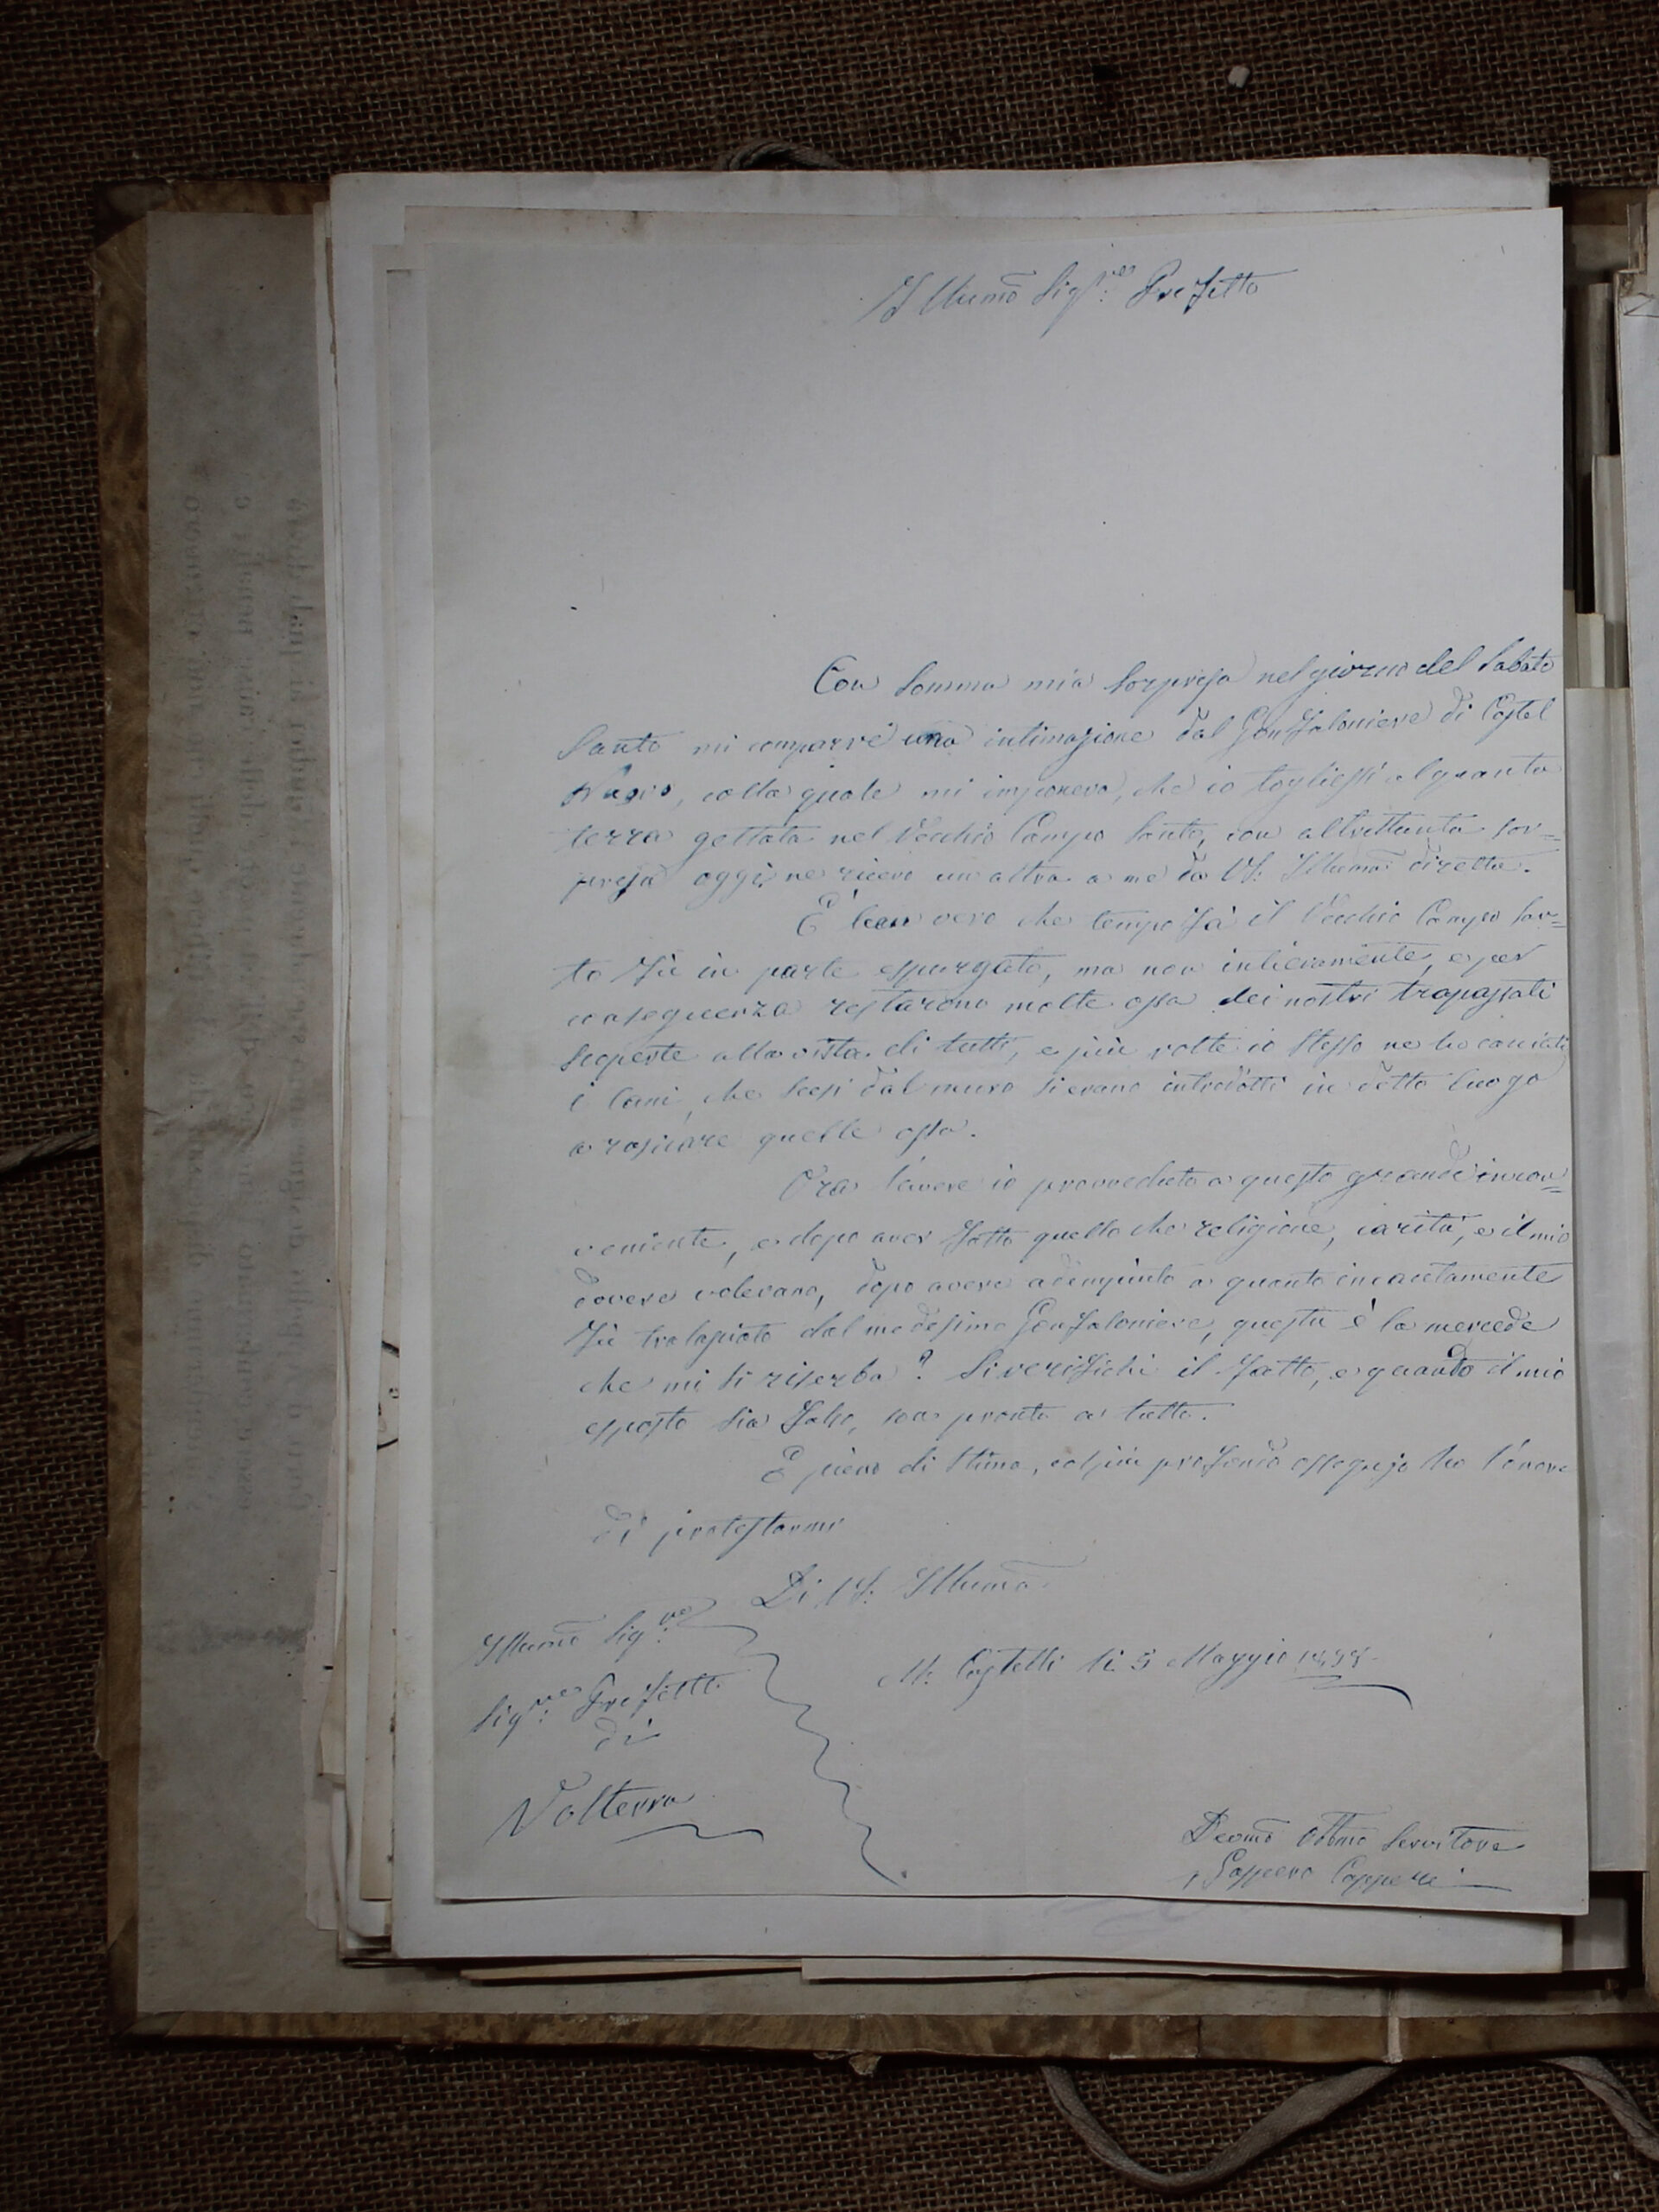 Illumo Sigre: Prefetto
Con somma mia sorpresa nel giorno del Sabato
Santo mi comparve una intimazione dal Gonfaloniere di Castel
Nuovo, colla quale mi imponeva, che io togliessi alquanta
terra gettata nel Vecchio Campo Santo, con altrettanta sor=
presa oggi ne ricevo un altra a me da VS: Illuma diretta.
E' ben vero che tempo fà il Vecchio Campo San=
to fù in parte espurgato, ma non intieramente, e per
conseguenza restarono molte ossa dei nostri trapassati
scoperte alla vista di tutti, e più volte io stesso ne ho cacciati
i Cani, che scesi dal muro si erano introdotti in detto luogo
a rosicare quelle ossa.
Ora l'avere io provveduto a questo grande incon=
veniente, e dopo aver fatto quello che religione, carità, e il mio
dovere volevano, dopo avere adempiuto a quanto incautamente
fù tralasciato dal medesimo Gonfaloniere, questa è la mercede
che mi si riserba? Si verifichi il fatto, e quando il mio
esposto sia falso, son pronto a tutto.
E pieno di stima, col più profondo ossequio ho l'onore
di protestarmi
Di VS: Illuma
Illumo Sigre:
Sigre: Prefetto
di
Volterra
M: Castelli li 5 Maggio
Devmo Obbmo Servitore